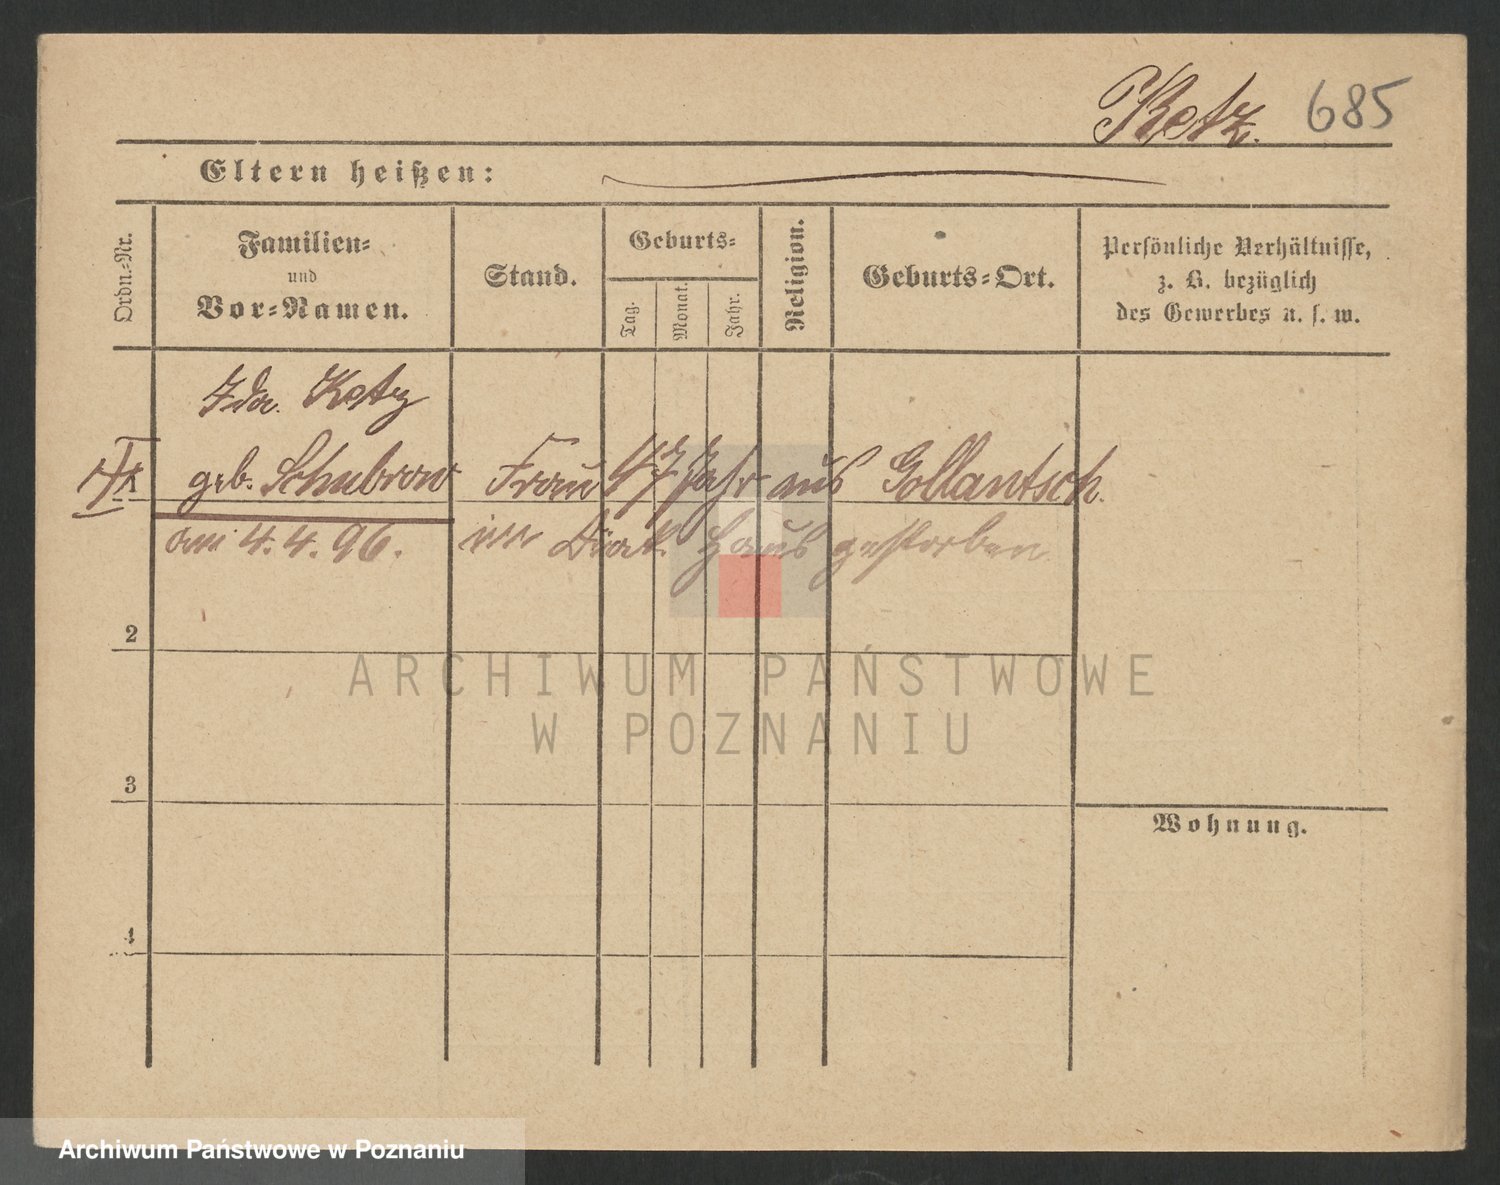 Ketz. 685
Eltern heißen:
Ordn.-Nr.
Familien-
und
Vor-Namen.
Stand.
Geburts-
Tag.
Monat.
Jahr.
Religion.
Geburts-Ort.
Persönliche Verhältnisse,
z. B. bezüglich
des Gewerbes u. s. w.
Ida Ketz
1 geb. Schubrow Frau 47 Jahr aus Gollantsch.
am 4. 4. 96. im Diak. Haus gestorben.
2
3
Wohnung.
4
ARCHIWUM PAŃSTWOWE
W POZNANIU
Archiwum Państwowe w Poznaniu